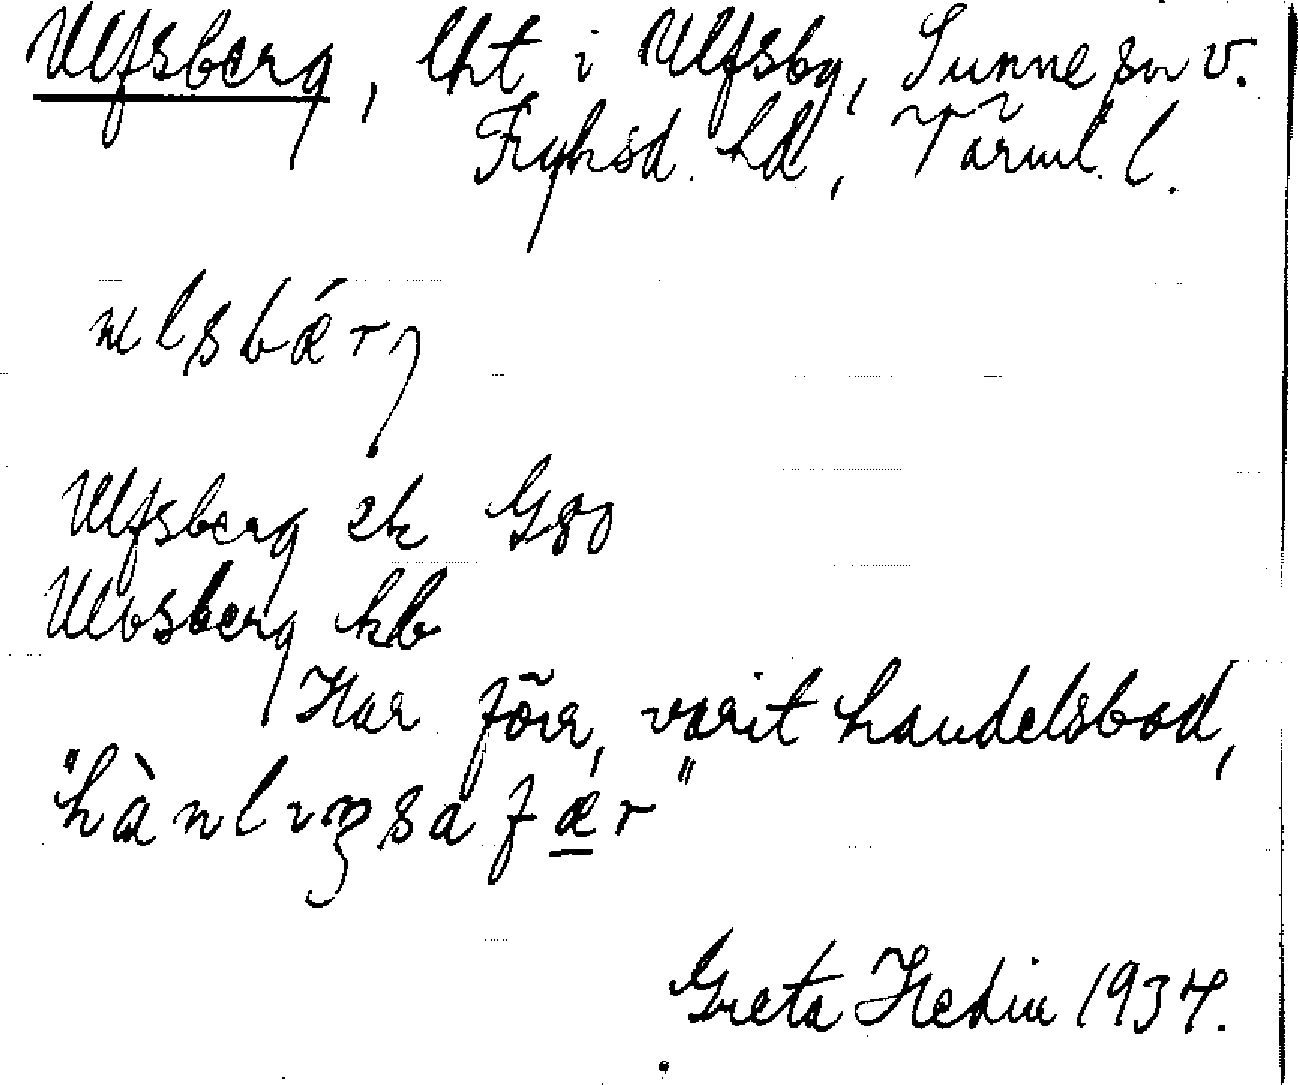 Ulfsberg, lht i Ulfsby, Sunne sn v.
Fryksd. hd, Värml. l.
ulsbǽrj
Ulfsberg ek G80
Ulvsberg hb
Har förr, varit handelsbod,
"hànlıŋsafær"
Greta Hedin 1934.